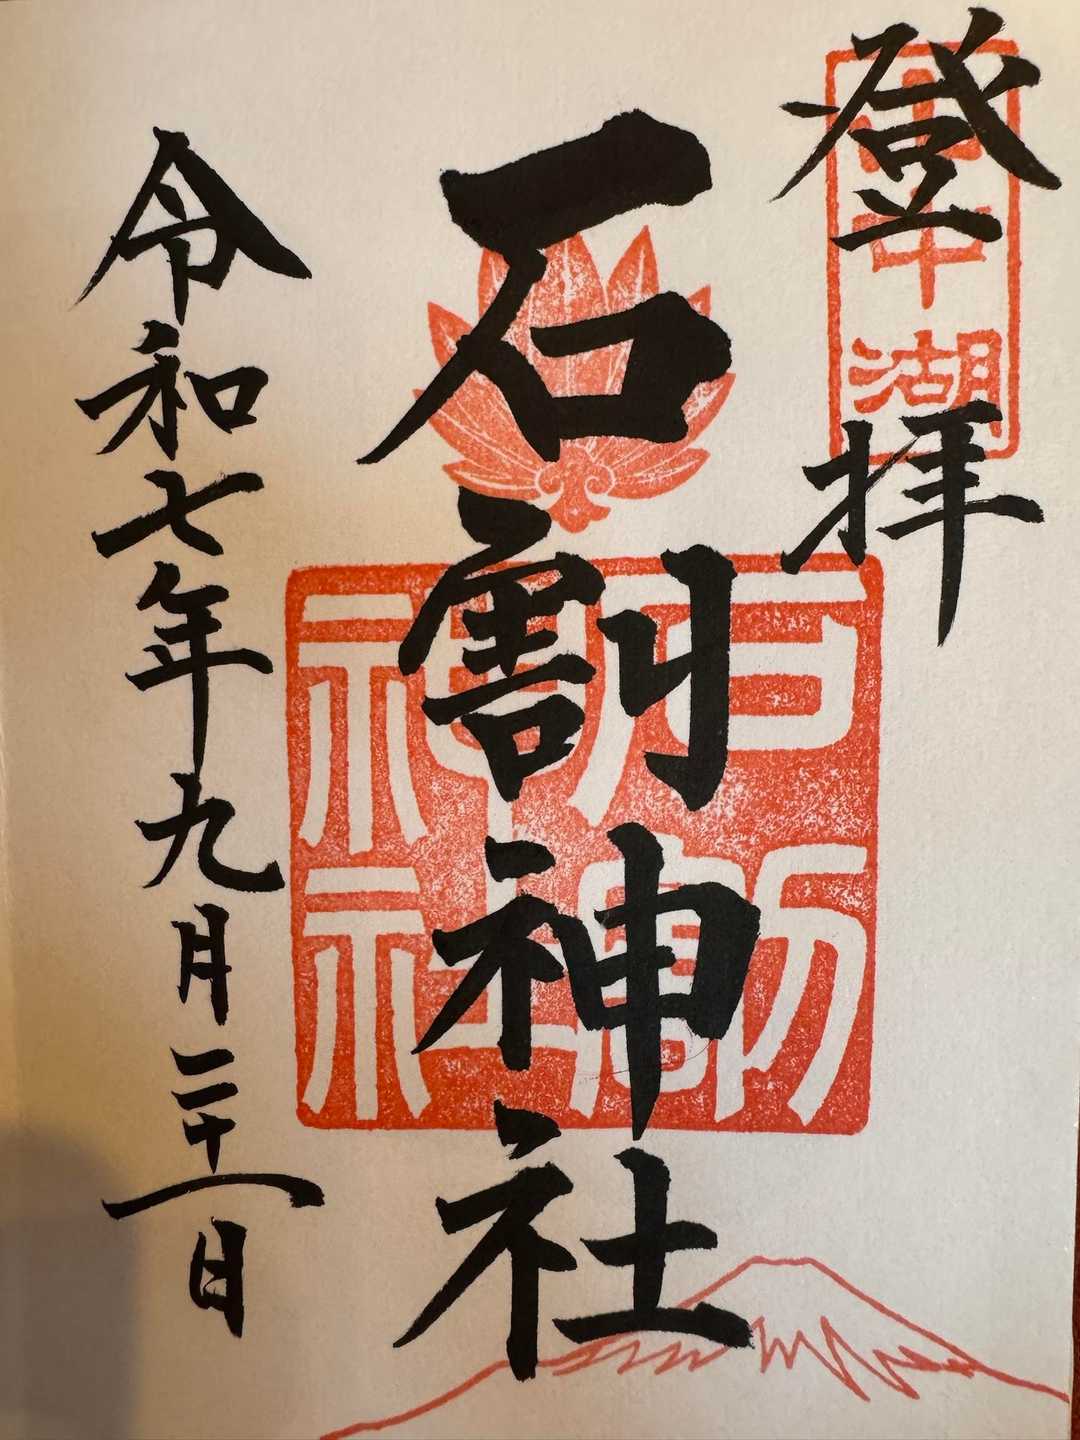 登拝
山中湖
石割神社
石割神社
令和七年九月二十一日